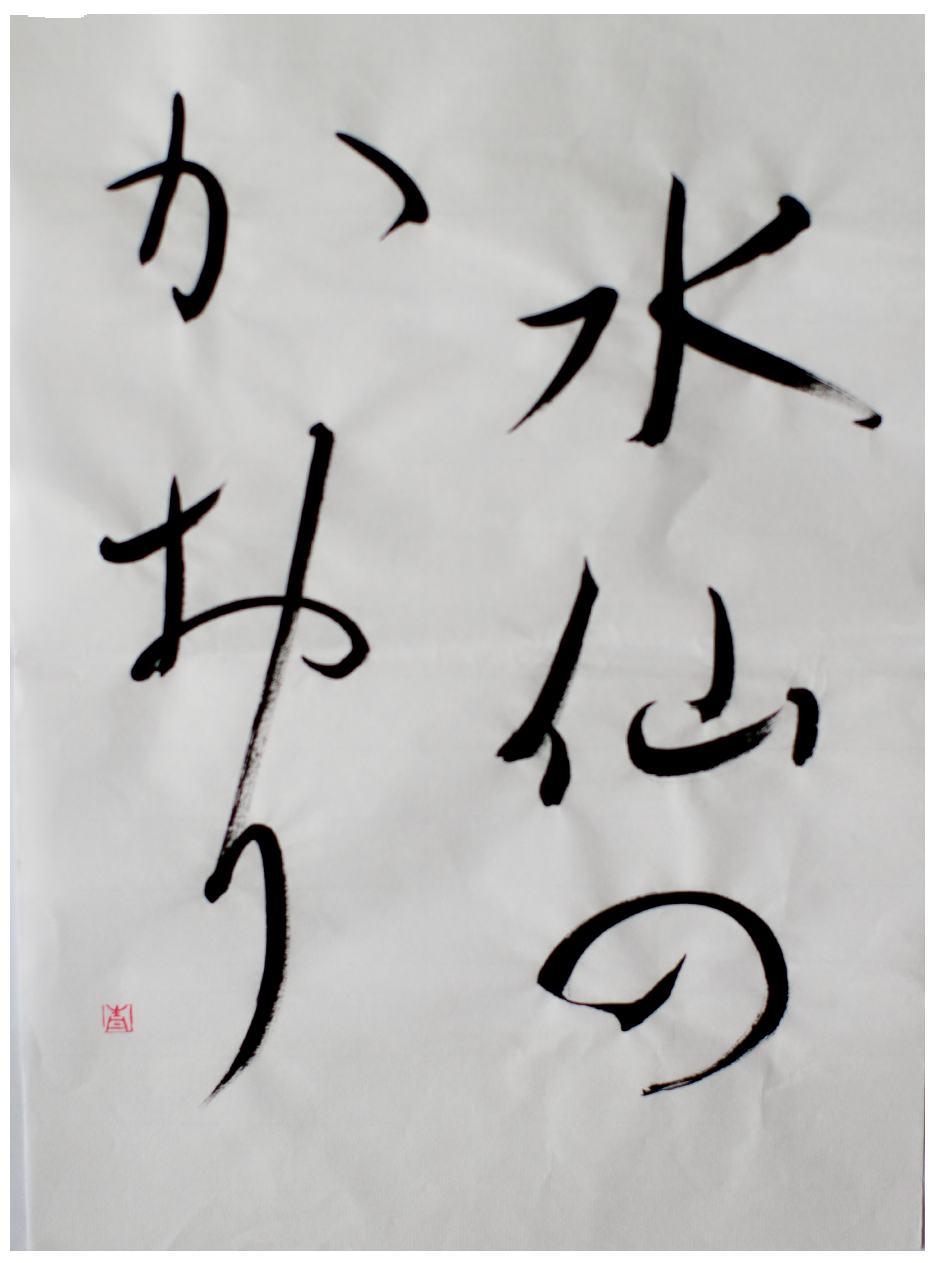 水仙の
かおり